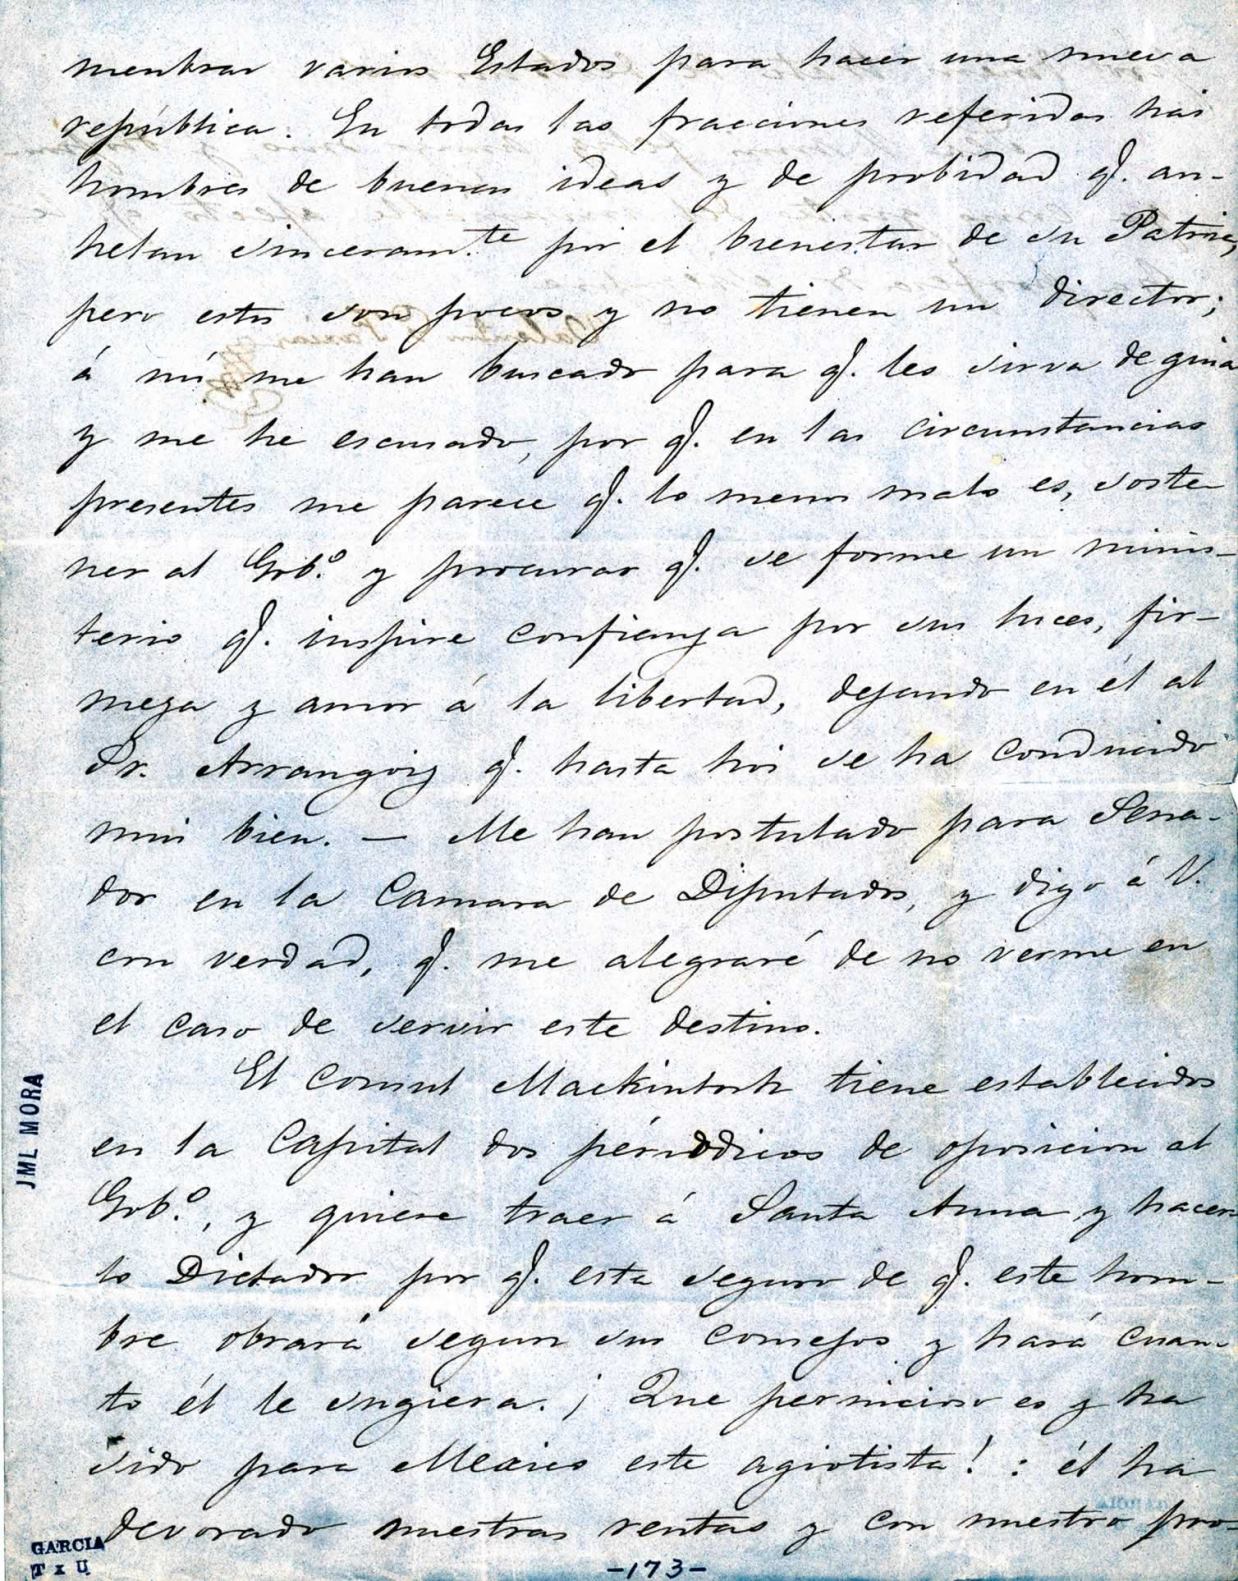 membrar varios Estados para hacer una nueva
república. En todas las fracciones referidas hai
hombres de buenas ideas y de probidad q.e an-
helan sinceram.te por el bienestar de su Patria,
pero estos son pocos y no tienen un director;
á mí me han buscado para q.e les sirva de guia
y me he escusado, por q.e en las circumstancias
presentes me parece q.e lo menos malo es, soste
ner al Gob.º y procurar q.e se forme un minis-
terio q.e inspire confianza por sus luces, fir-
meza y amor á la libertad, dejando en él al
Sr. Arrangoiz q.e hasta hoi se ha conducido
mui bien. — Me han postulado para Sena-
dor en la Camara de Diputados, y digo á V.
con verdad, q.e me alegraré de no verme en
el caso de servir este destino.
El Consul Mackintosh tiene establecidos
en la Capital dos périodicos de oposicion al
Gob.º, y quiere traer á Santa Anna y hacer
lo Dictador por q.e esta seguro de q.e este hom-
bre obrará segun sus consejos y hará cuan-
to él le sugiera. ¡Que pernicioso es y ha
sido para Mexico este agiotista! : él ha
devorado nuestras rentas y con nuestro pro-
-173-
JML MORA
GARCIA